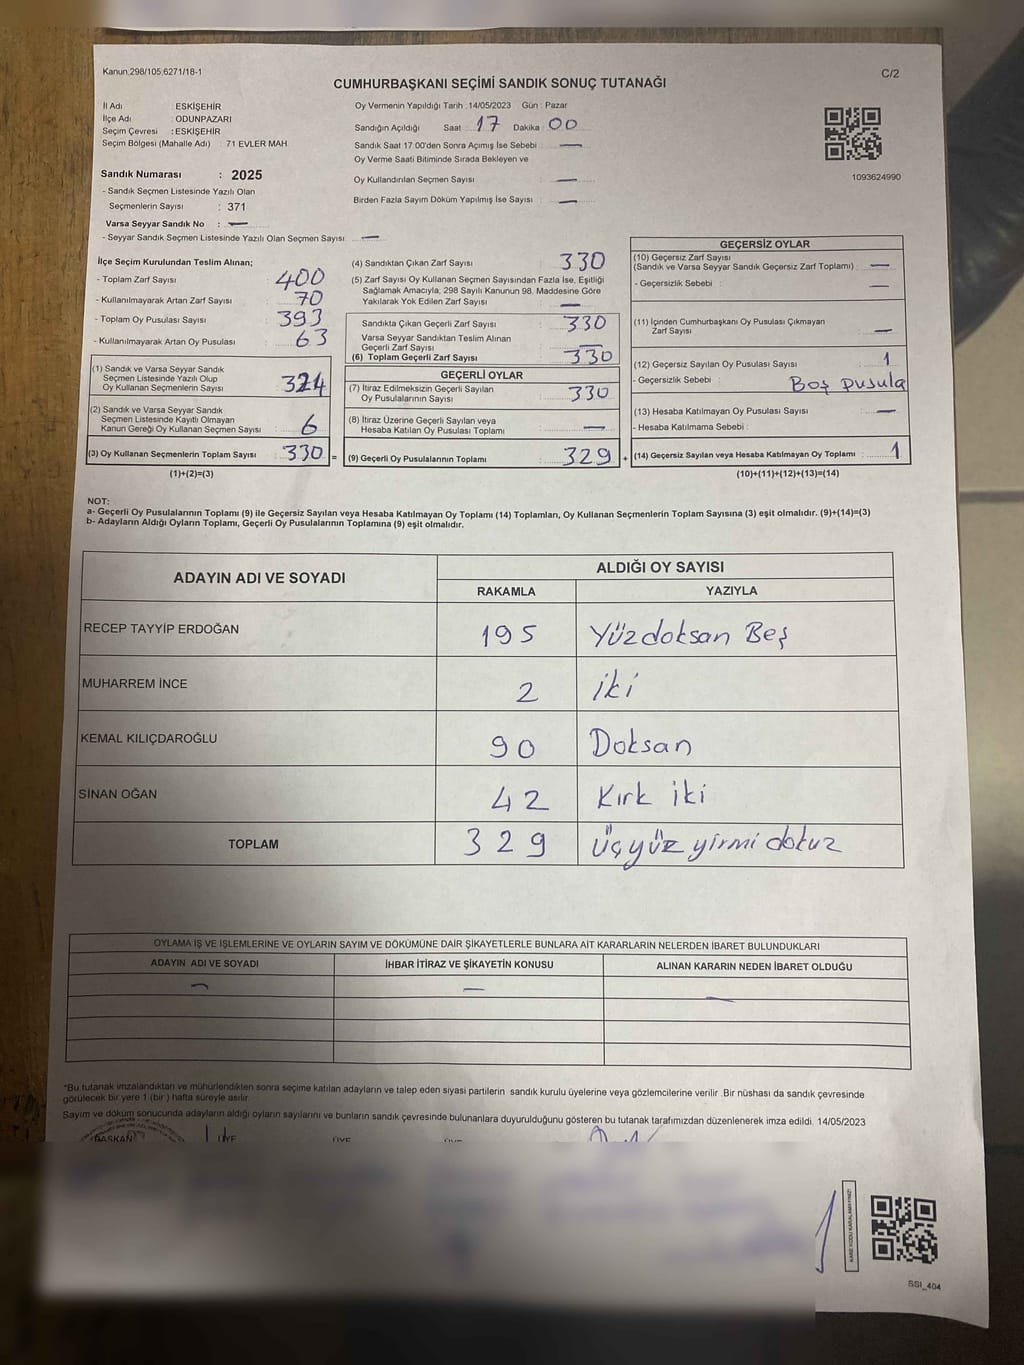 Kanun,298/105,6271/18-1
C/2
CUMHURBAŞKANI SEÇİMİ SANDIK SONUÇ TUTANAĞI
İl Adı : ESKİŞEHİR
İlçe Adı : ODUNPAZARI
Seçim Çevresi : ESKİŞEHİR
Seçim Bölgesi (Mahalle Adı) : 71 EVLER MAH.
Oy Vermenin Yapıldığı Tarih :14/05/2023 Gün : Pazar
Sandığın Açıldığı Saat : 17 Dakika : 00
Sandık Saat 17.00'den Sonra Açımış İse Sebebi : —
Oy Verme Saati Bitiminde Sırada Bekleyen ve
Oy Kullandırılan Seçmen Sayısı : —
Birden Fazla Sayım Döküm Yapılmış İse Sayısı : —
1093624990
Sandık Numarası : 2025
- Sandık Seçmen Listesinde Yazılı Olan
Seçmenlerin Sayısı : 371
Varsa Seyyar Sandık No : —
- Seyyar Sandık Seçmen Listesinde Yazılı Olan Seçmen Sayısı : —
İlçe Seçim Kurulundan Teslim Alınan;
- Toplam Zarf Sayısı : 400
- Kullanılmayarak Artan Zarf Sayısı : 70
- Toplam Oy Pusulası Sayısı : 393
- Kullanılmayarak Artan Oy Pusulası : 63
(1) Sandık ve Varsa Seyyar Sandık
Seçmen Listesinde Yazılı Olup
Oy Kullanan Seçmenlerin Sayısı : 324
(2) Sandık ve Varsa Seyyar Sandık
Seçmen Listesinde Kayıtlı Olmayan
Kanun Gereği Oy Kullanan Seçmen Sayısı : 6
(3) Oy Kullanan Seçmenlerin Toplam Sayısı : 330 =
(1)+(2)=(3)
(4) Sandıktan Çıkan Zarf Sayısı : 330
(5) Zarf Sayısı Oy Kullanan Seçmen Sayısından Fazla İse, Eşitliği
Sağlamak Amacıyla, 298 Sayılı Kanunun 98. Maddesine Göre
Yakılarak Yok Edilen Zarf Sayısı : —
Sandıkta Çıkan Geçerli Zarf Sayısı : 330
Varsa Seyyar Sandıktan Teslim Alınan
Geçerli Zarf Sayısı : —
(6) Toplam Geçerli Zarf Sayısı : 330
GEÇERLİ OYLAR
(7) İtiraz Edilmeksizin Geçerli Sayılan
Oy Pusulalarının Sayısı : 330
(8) İtiraz Üzerine Geçerli Sayılan veya
Hesaba Katılan Oy Pusulası Toplamı : —
(9) Geçerli Oy Pusulalarının Toplamı : 329 +
GEÇERSİZ OYLAR
(10) Geçersiz Zarf Sayısı
(Sandık ve Varsa Seyyar Sandık Geçersiz Zarf Toplamı) : —
- Geçersizlik Sebebi : —
(11) İçinden Cumhurbaşkanı Oy Pusulası Çıkmayan
Zarf Sayısı : —
(12) Geçersiz Sayılan Oy Pusulası Sayısı : 1
- Geçersizlik Sebebi : Boş pusula
(13) Hesaba Katılmayan Oy Pusulası Sayısı : —
- Hesaba Katılmama Sebebi :
(14) Geçersiz Sayılan veya Hesaba Katılmayan Oy Toplamı : 1
(10)+(11)+(12)+(13)=(14)
NOT:
a- Geçerli Oy Pusulalarının Toplamı (9) ile Geçersiz Sayılan veya Hesaba Katılmayan Oy Toplamı (14) Toplamları, Oy Kullanan Seçmenlerin Toplam Sayısına (3) eşit olmalıdır. (9)+(14)=(3)
b- Adayların Aldığı Oyların Toplamı, Geçerli Oy Pusulalarının Toplamına (9) eşit olmalıdır.
ADAYIN ADI VE SOYADI
ALDIĞI OY SAYISI
RAKAMLA YAZIYLA
RECEP TAYYİP ERDOĞAN 195 Yüzdoksan Beş
MUHARREM İNCE 2 iki
KEMAL KILIÇDAROĞLU 90 Doksan
SİNAN OĞAN 42 Kırk iki
TOPLAM 329 üçyüz yirmi dokuz
OYLAMA İŞ VE İŞLEMLERİNE VE OYLARIN SAYIM VE DÖKÜMÜNE DAİR ŞİKAYETLERLE BUNLARA AİT KARARLARIN NELERDEN İBARET BULUNDUKLARI
ADAYIN ADI VE SOYADI İHBAR İTİRAZ VE ŞİKAYETİN KONUSU ALINAN KARARIN NEDEN İBARET OLDUĞU
— — —
*Bu tutanak imzalandıktan ve mühürlendikten sonra seçime katılan adayların ve talep eden siyasi partilerin sandık kurulu üyelerine veya gözlemcilerine verilir .Bir nüshası da sandık çevresinde
görülecek bir yere 1 (bir ) hafta süreyle asılır.
Sayım ve döküm sonucunda adayların aldığı oyların sayılarını ve bunların sandık çevresinde bulunanlara duyurulduğunu gösteren bu tutanak tarafımızdan düzenlenerek imza edildi. 14/05/2023
BAŞKAN ÜYE ÜYE ÜYE
KARE KODU KARALAMAYINIZ!
SSI_404